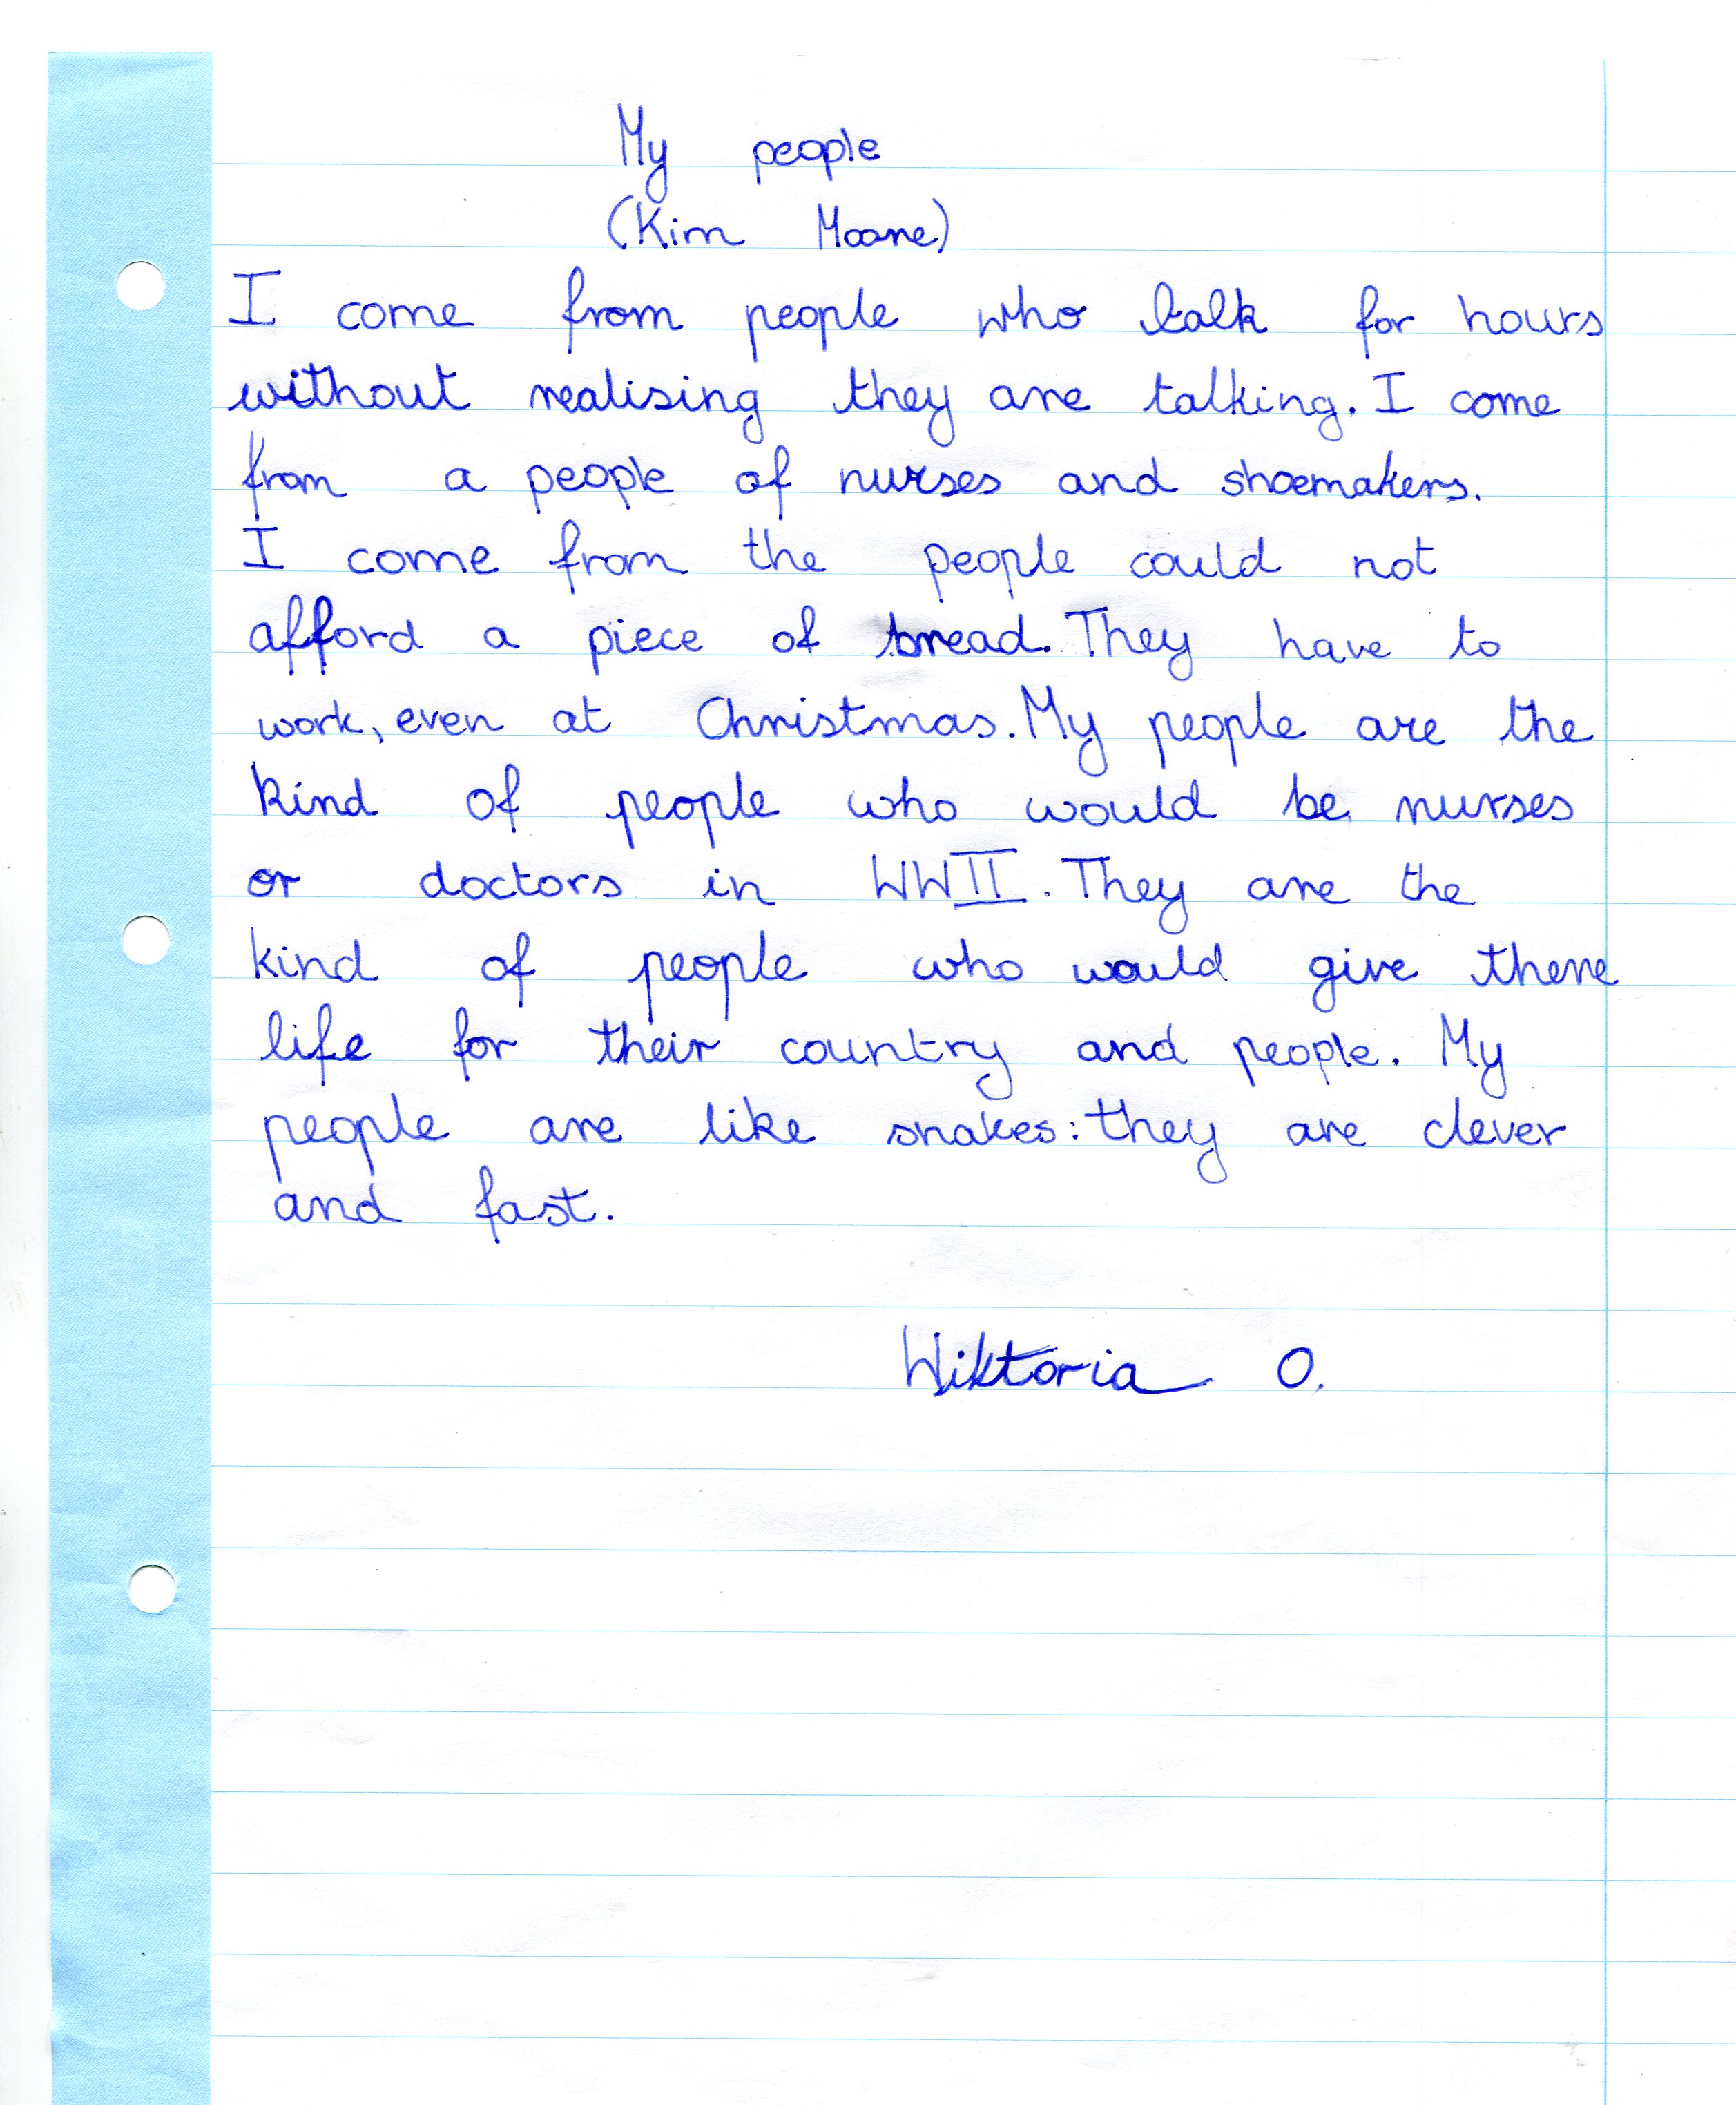 My people
(Kim Moore)
I come from people who talk for hours
without realising they are talking. I come
from a people of nurses and shoemakers.
I come from the people could not
afford a piece of bread. They have to
work, even at Christmas. My people are the
kind of people who would be nurses
or doctors in WWII. They are the
kind of people who would give there
life for their country and people. My
people are like snakes: they are clever
and fast.
Wiktoria O.